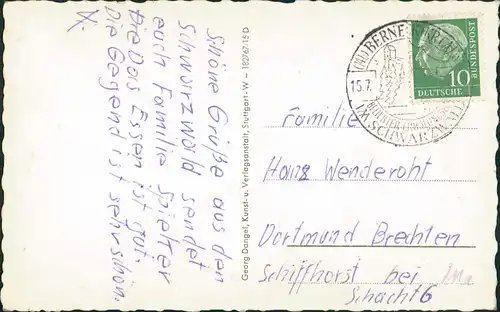 Schöne Grüße aus den
Schwarzwald sendet
euch Familie Spielter
Die Das Essen ist gut.
Die Gegend ist sehr schön.
Georg Dangel, Kunst- u. Verlagsanstalt, Stuttgart-W – 182767/15 D
(14b) BERNECK
15.7.
IM SCHWARZWALD
10
DEUTSCHE
BUNDESPOST
Familie
Hanz Wenderoht
Dortmund Brechten
Schiffhorst bei
Schacht 6